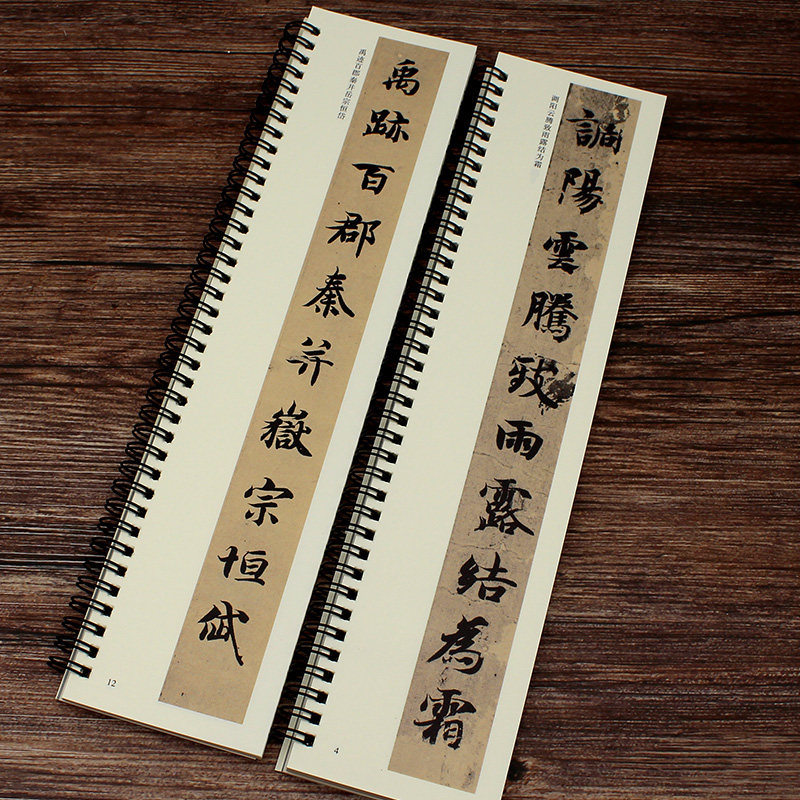 禹迹百郡秦并岳宗恒岱
禹跡百郡秦并嶽宗恒岱
12
调阳云腾致雨露结为霜
調陽雲騰致雨露結為霜
4